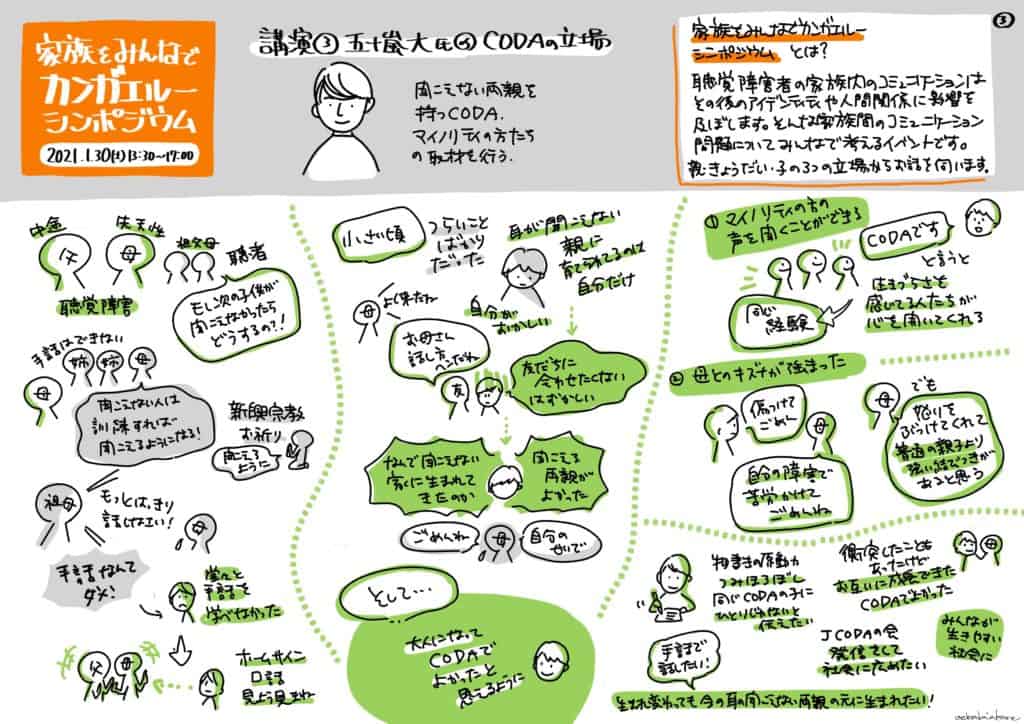 家族をみんなで
カンガエルー
シンポジウム
2021.1.30(土)13:30〜17:00
講演③ 五十嵐大氏の CODAの立場
聞こえない両親を
持つCODA.
マイノリティの方たち
の取材を行う.
③
家族をみんなでカンガエルー
シンポジウム とは?
聴覚障害者の家族内のコミュニケーションは
その後のアイデンティティや人間関係に影響を
及ぼします。そんな家族間のコミュニケーション
問題についてみんなで考えるイベントです。
親・きょうだい・子の3つの立場からお話を伺います.
中途
先天性
父
母
祖父母
聴者
聴覚障害
もし次の子供が
聞こえなかったら
どうするの?!
手話はできない
母
姉
姉
母
聞こえない人は
訓練すれば
聞こえるようになる!
新興宗教
お祈り
聞こえる
ように
祖母
もっとはっきり
話しなさい!
母
手話なんて
ダメ!
堂々と
手話を
学べなかった
父
母
ホームサイン
口話
見よう見まね
小さい頃
つらいこと
ばかり
だった
耳が聞こえない
親に
育てられてるのは
自分だけ
自分が
おかしい
母
よく来たね
お母さん
話し方
ヘンだね
友
友だちに
会わせたくない
はずかしい
なんで聞こえない
家に生まれて
きたのか
聞こえる
両親が
よかった
ごめんね
母
自分の
せいで
そして…
大人になって
CODAで
よかったと
思えるように
① マイノリティの方の
声を聞くことができる
CODAです
と言うと
生きづらさを
感じてる人たちが
心を開いてくれる
同じ
経験
② 母とのキズナが強まった
傷つけて
ごめん
母
自分の障害で
苦労かけて
ごめんね
母
でも
怒りを
ぶつけてくれて
普通の親子より
強い結びつきが
あると思う
物書きの原動力
つみほろぼし
同じCODAの子に
ひとりじゃないと
伝えたい
衝突したことも
あったけど
お互いに成長できた
CODAでよかった
母
手話で
話したい!
JCODAの会
発信をして
社会に広めたい
みんなが
生きやすい
社会に
生まれ変わっても今の耳の聞こえない両親の元に生まれたい!